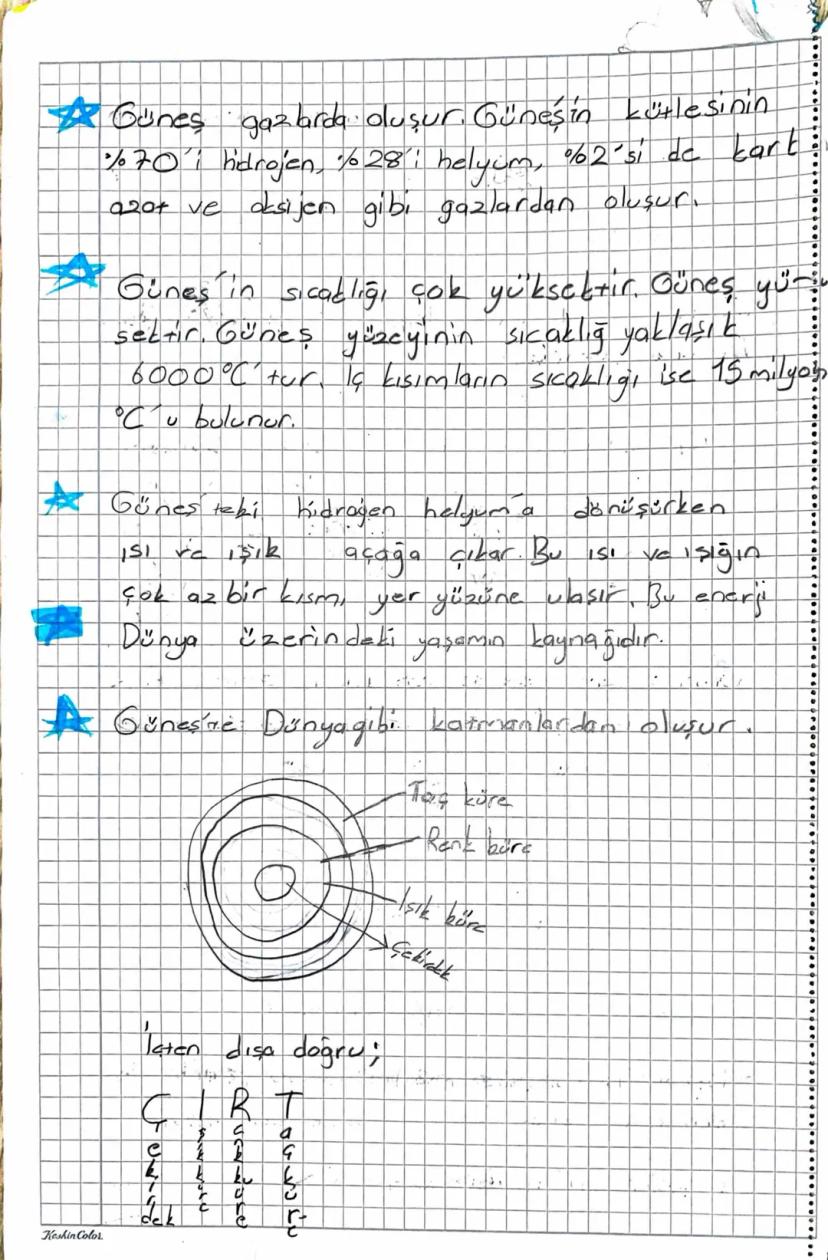 Güneş gazlarda oluşur. Güneş'in kütlesinin
%70'i hidrojen, %28'i helyum, %2'si de kart
azot ve oksijen gibi gazlardan oluşur.
Güneş'in sıcaklığı çok yüksektir. Güneş yü-
sektir. Güneş yüzeyinin sıcaklığ yaklaşık
6000°C'tur. İç kısımların sıcaklığı ise 15 milyon
°C'u bulunur.
Güneş'teki hidrojen helyum'a dönüşürken
ısı ve ışık açağa çıkar. Bu ısı ve ışığın
çok az bir kısmı yer yüzüne ulaşır. Bu enerji
Dünya üzerindeki yaşamın kaynağıdır.
Güneş'te Dünya gibi katmanlardan oluşur.
Taç küre
Renk küre
Işık küre
Çekirdek
İçten dışa doğru;
Ç I R T
KeskinColor